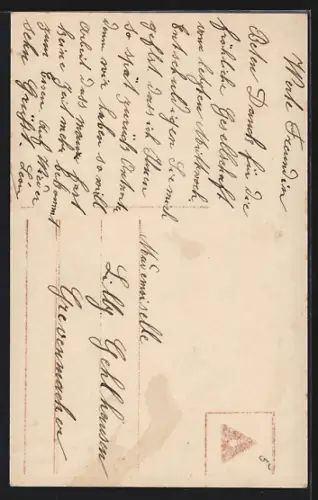 Werte Freundin
Besten Dank für die
fröhliche Gesellschaft
vom letzten Mittwoch.
Entschuldigen Sie mich
gefhl. dass ich Ihnen
so spät zurück Antworte
denn wir haben so viel
Arbeit dass man fast
keine Zeit mehr bekommt
zum Essen. Auf Wieder
sehn Grüsst.
Mademoiselle
Lilly Gehlhausen
Grevenmacher